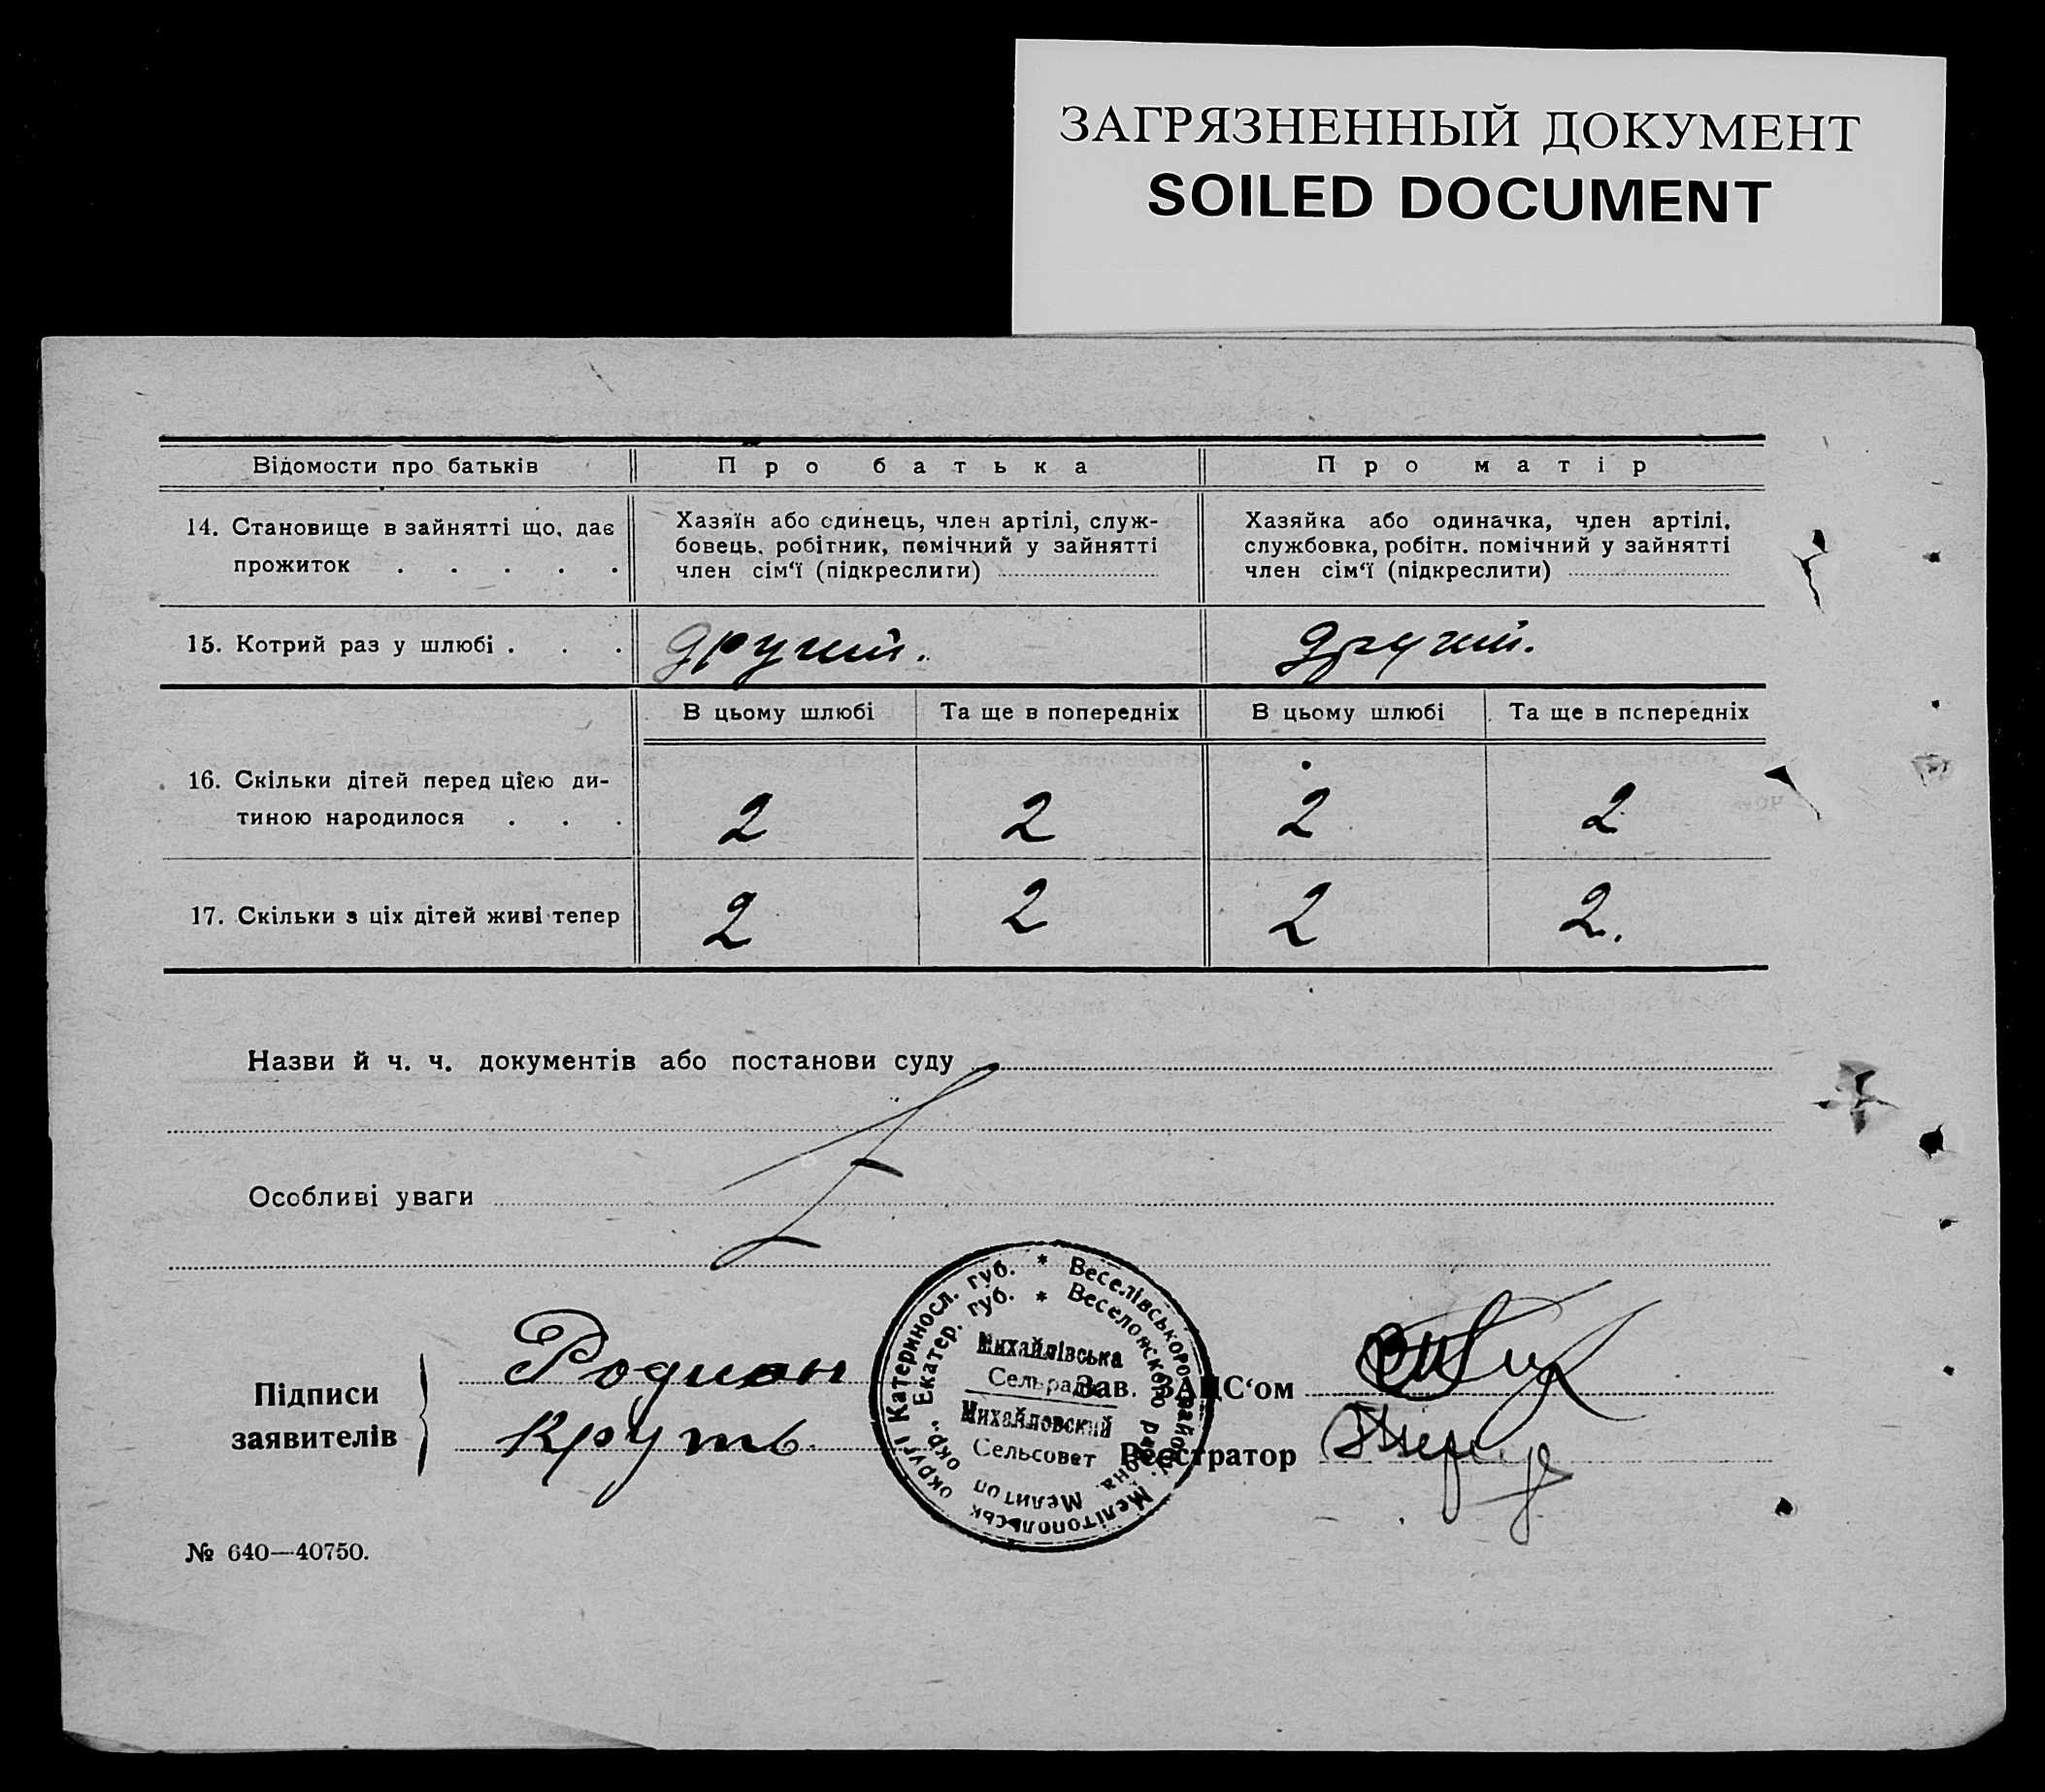 ЗАГРЯЗНЕННЫЙ ДОКУМЕНТ
SOILED DOCUMENT
Відомости про батьків Про батька Про матір
14. Становище в зайнятті що, дає прожиток . . . . .
Хазяїн або єдинець, член артілі, служ-
бовець, робітник, помічний у зайнятті
член сім‘ї (підкреслити)
Хазяйка або одиначка, член артілі,
службовка, робітн. помічний у зайнятті
член сім‘ї (підкреслити)
15. Котрий раз у шлюбі . . . другий. другий.
В цьому шлюбі Та ще в попередніх В цьому шлюбі Та ще в попередніх
16. Скільки дітей перед цією ди-
тиною народилося . . . 2 2 2 2
17. Скільки з ціх дітей живі тепер 2 2 2 2.
Назви й ч. ч. документів або постанови суду
Особливі уваги
Підписи
заявителів
Родион
Круть.
Катериносл. губ. * Веселівського району. Мелітопольськ округі
Екатер. губ. * Веселонского района. Мелитоп окр.
Михайлівська
Сельрада
Михайловский
Сельсовет
Зав. ЗАЦС‘ом
Реєстратор
№ 640—40750.